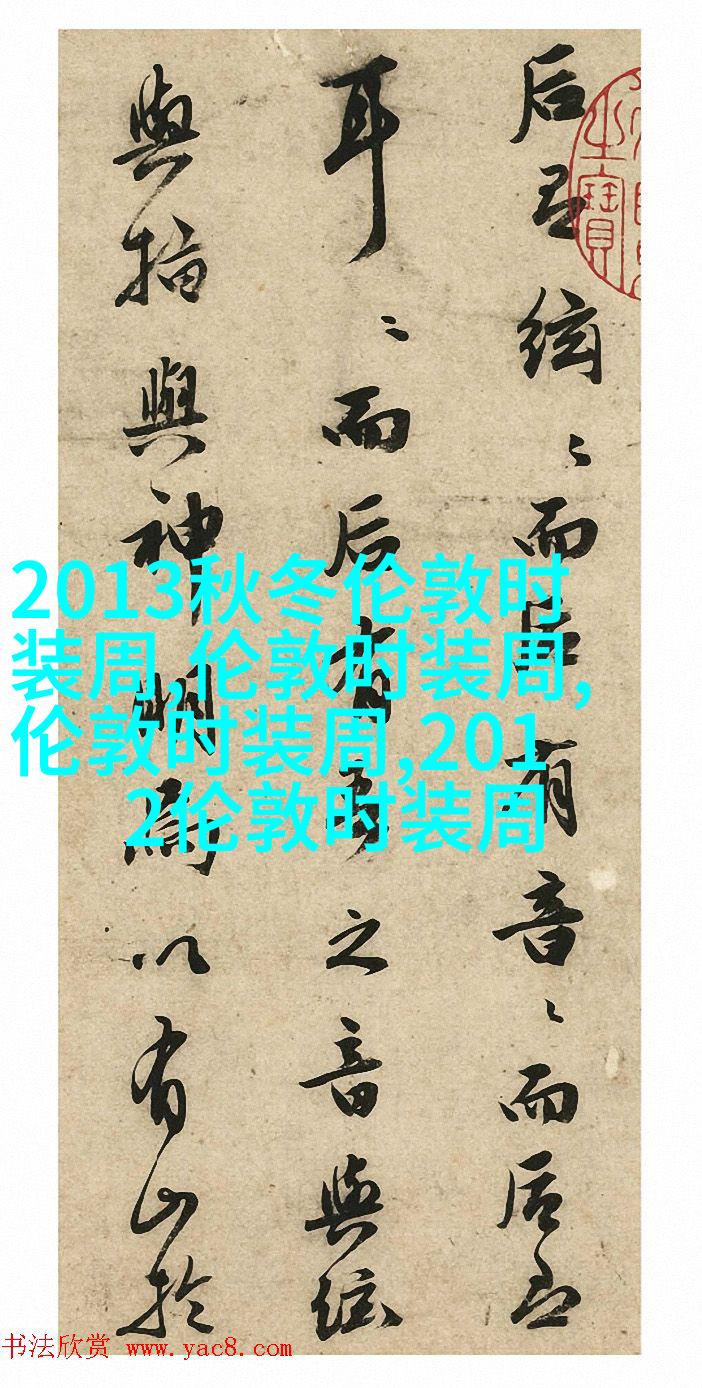 后絃〻而后有音〻而后
耳〻而后有之音與絃
與指與神明為以有山於
之寶
2013秋冬伦敦时
装周,伦敦时装周,
伦敦时装周,201
2伦敦时装周
书法欣赏 www.yac8.com